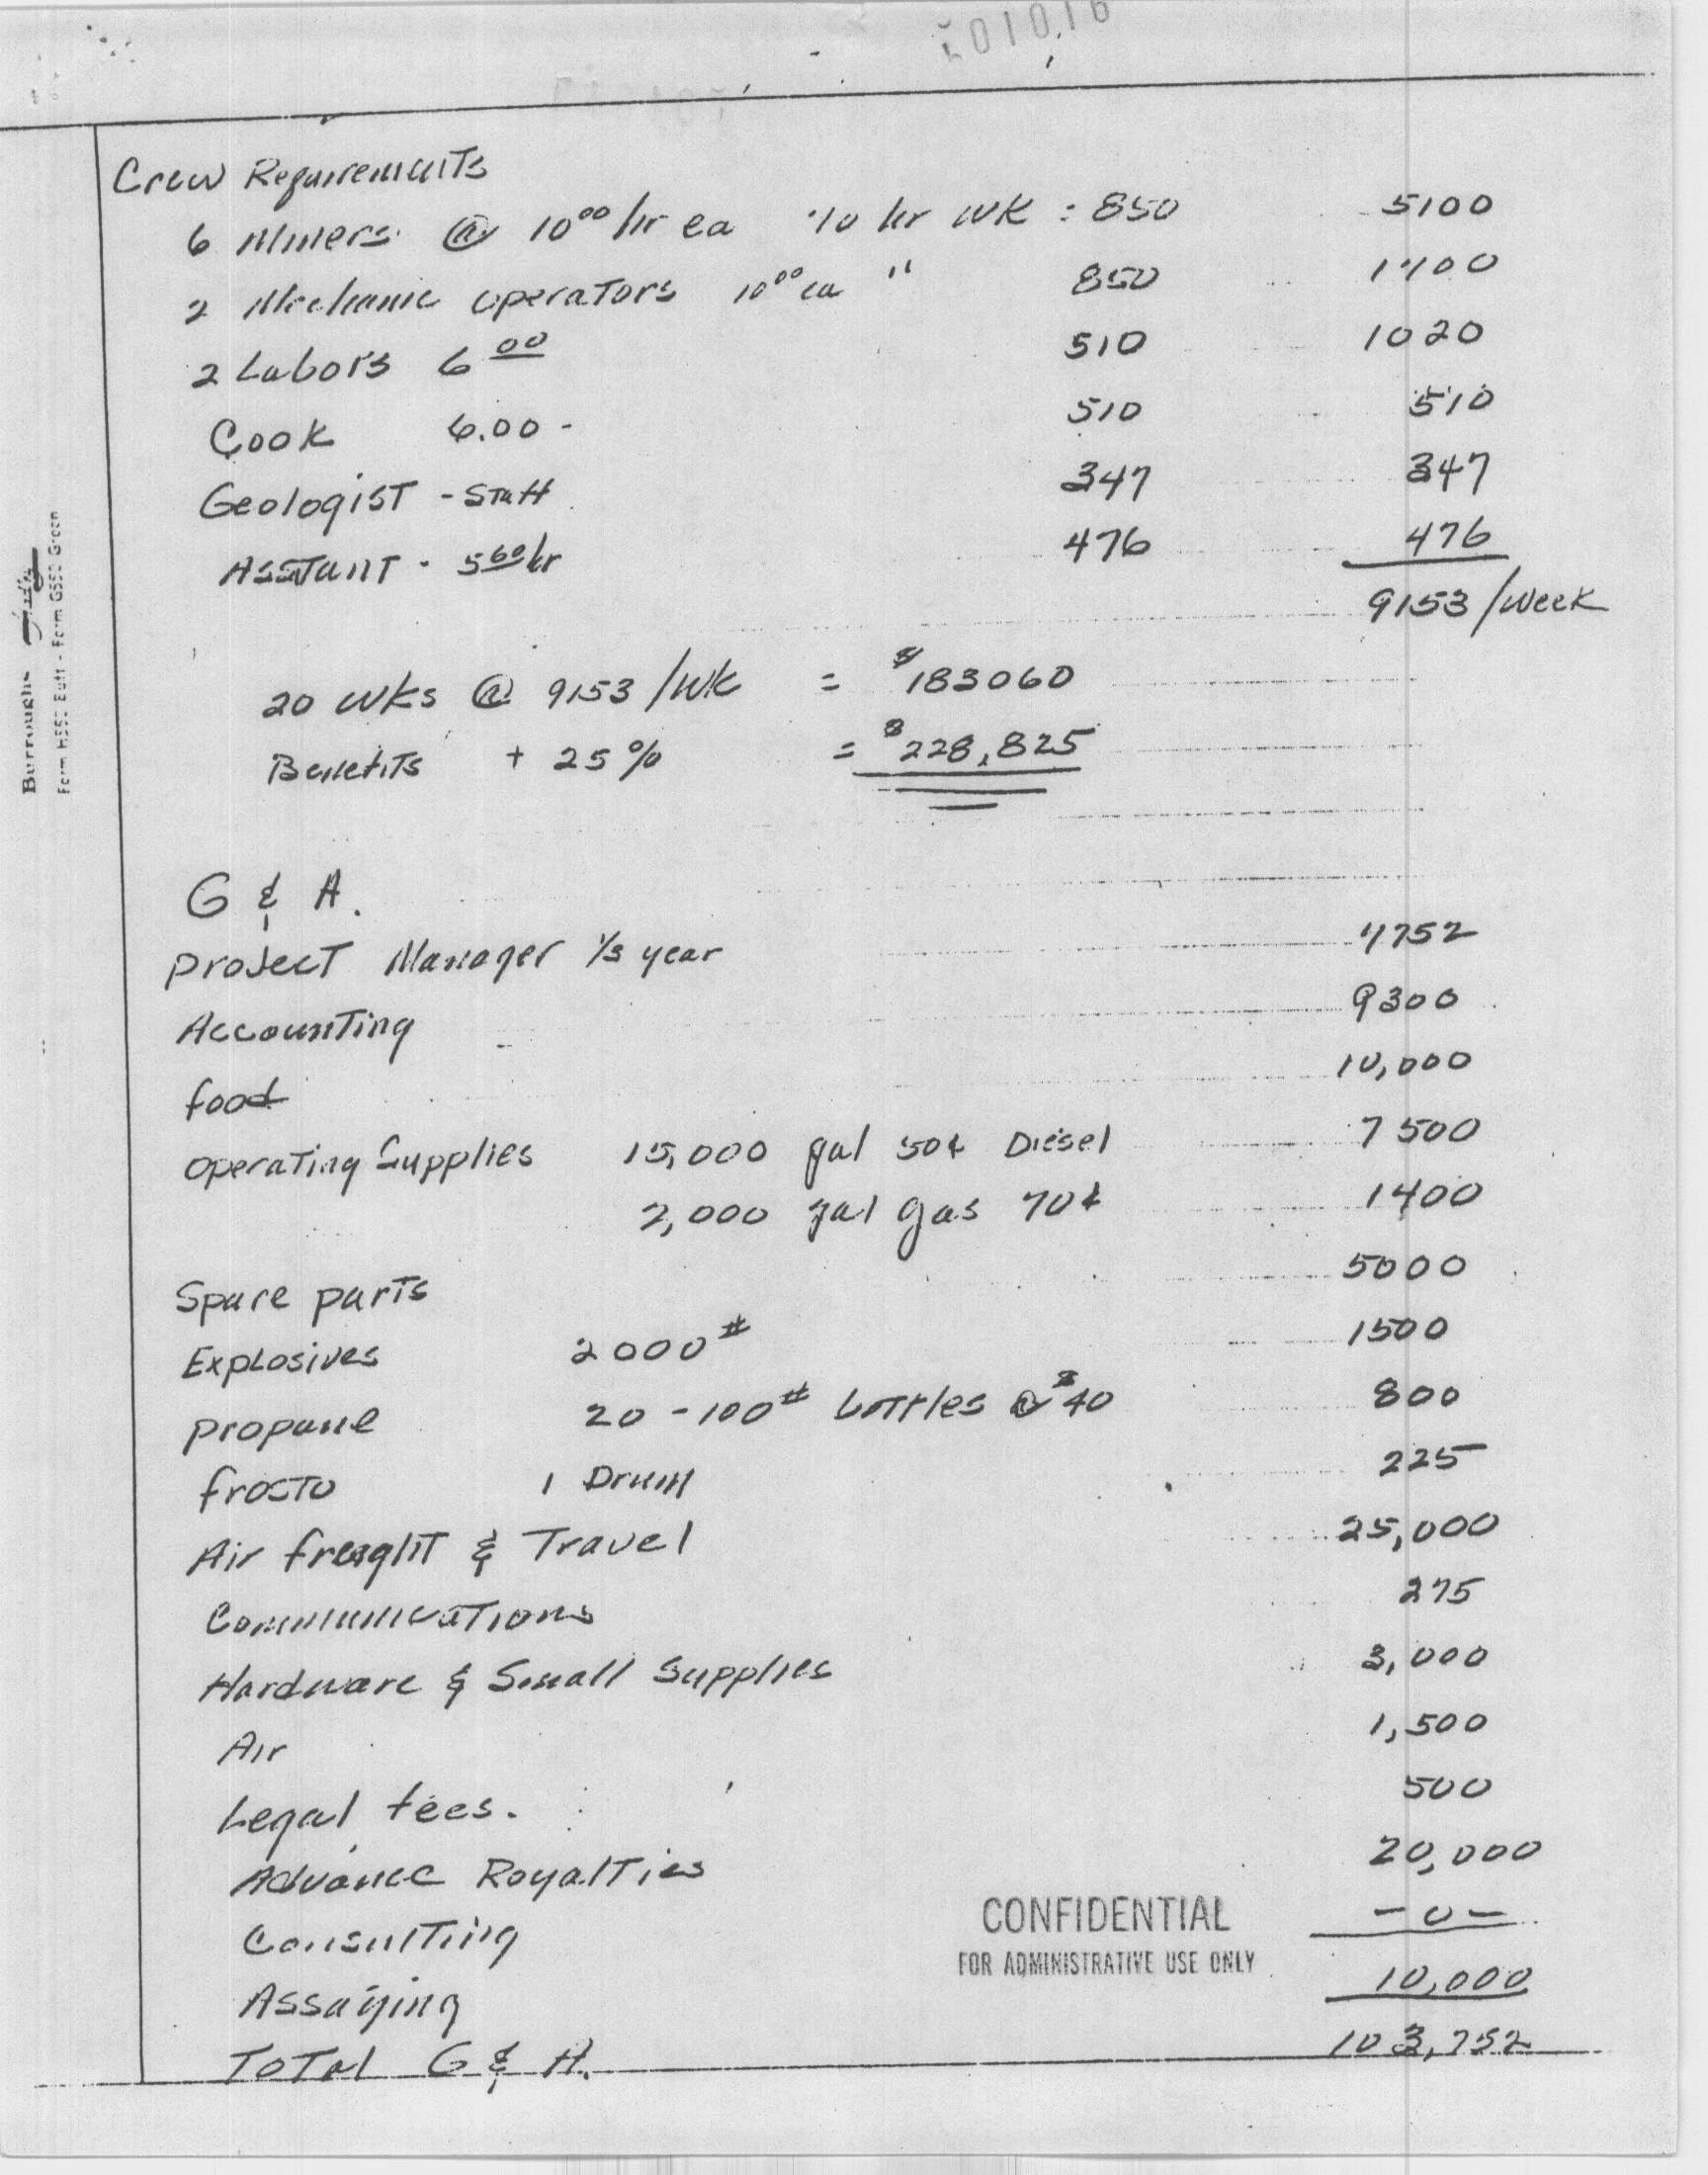 Crew Requirements
6 Miners @ 10⁰⁰/hr ea 70 hr WK : 850 5100
2 Mechanic operators 10⁰⁰ ea " 850 1700
2 Labors 6 00 510 1020
Cook 6.00 - 510 510
Geologist - Staff 347 347
Asstant - 5⁶⁰hr 476 476
9153 /week
20 WKs @ 9153 /WK = $183060
Benefits + 25% = $228,825
G & A.
Project Manager 1/3 year 7752
Accounting 9300
food 10,000
operating Supplies 15,000 gal 50¢ Diesel 7500
2,000 gal gas 70¢ 1400
Spare parts 5000
Explosives 2000# 1500
propane 20 - 100# bottles @ $40 800
frosto 1 Drum 225
Air freight & Travel 25,000
Communications 275
Hardware & Small Supplies 3,000
Air 1,500
Legal fees. 500
Advance Royalties 20,000
Consulting -0-
Assaying 10,000
Total G & A. 103,752
CONFIDENTIAL
FOR ADMINISTRATIVE USE ONLY
Burroughs
Form H550 Buff - Form G550 Green